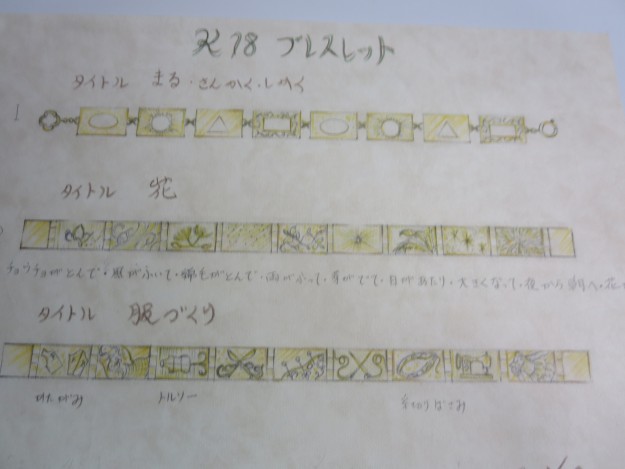 K18 ブレスレット
タイトル まる・さんかく・しかく
1
タイトル 花
チョウチョがとんで・風がふいて・綿毛がとんで・雨がふって・芽がでて・日があたり・大きくなって・夜から朝へ・花
タイトル 服づくり
かたがみ トルソー 糸切りばさみ